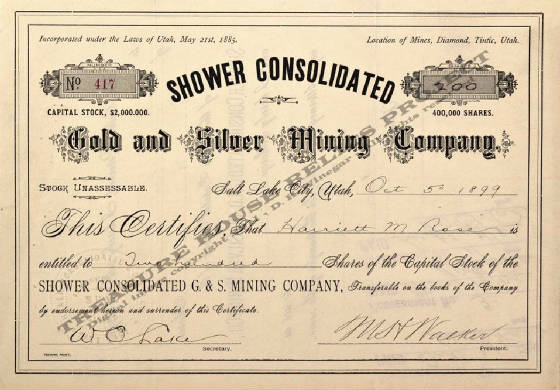 Incorporated under the Laws of Utah, May 21st, 1885.
Location of Mines, Diamond, Tintic, Utah.
NUMBER
SHARES
No. 417
SHOWER CONSOLIDATED
200
CAPITAL STOCK, $2,000,000.
400,000 SHARES.
Gold and Silver Mining Company.
STOCK UNASSESSABLE.
Salt Lake City, Utah, Oct 5th 1899
This Certifies, That Harriett M Rose is
entitled to Two Hundred Shares of the Capital Stock of the
SHOWER CONSOLIDATED G. & S. MINING COMPANY, Transferable on the books of the Company
by endorsement hereon and surrender of this Certificate.
W. C. Lake
M H Walker
Secretary.
President.
TREASURE HOUSE RELICS PROJECT
Digital Image copyright D. Vinegar